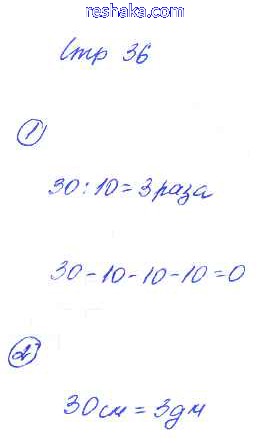 reshaka.com
Стр 36
1
30:10=3раза
30-10-10-10=0
2
30см=3дм